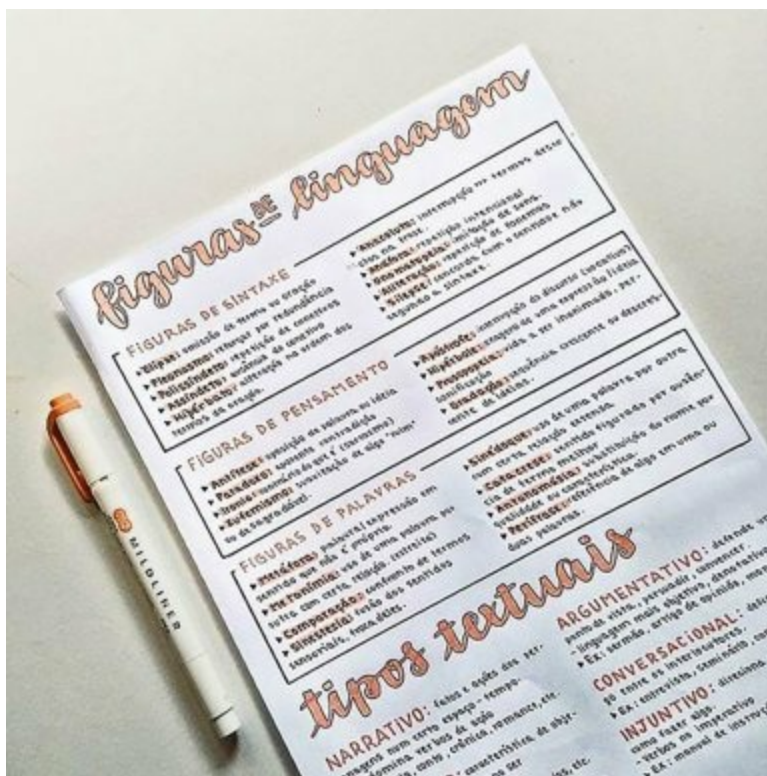 figuras DE linguagem
FIGURAS DE SINTAXE
▸ Elipse: omissão de termo ou oração
▸ Pleonasmo: reforçar por redundância
▸ Polissíndeto: repetição de conectivos
▸ Assíndeto: ausência de conetivo
▸ Hipérbato: alteração na ordem dos
termos da oração.
▸ Anacoluto: interrupção termos desse
na frase.
▸ Anáfora: repetição intencional
▸ Onomatopeia: imitação de sons.
▸ Aliteração: repetição de fonemas
▸ Silepse: concorda com o sentido e não
segundo a sintaxe.
FIGURAS DE PENSAMENTO
▸ Antítese: oposição de palavra ou idéia
▸ Paradoxo: aparente contradição
▸ Ironia: contrário do que é (sarcasmo)
▸ Eufemismo: suavização de algo "ruim"
ou desagradável.
▸ Apóstrofe: interrupção do discurso (vocativo)
▸ Hipérbole: exagero de uma expressão/idéia
▸ Prosopopeia: vida a ser inanimado, per-
sonificação
▸ Gradação: sequência crescente ou descres-
cente de idéias.
FIGURAS DE PALAVRAS
▸ Metáfora: palavra/expressão em
sentido que não é próprio.
▸ Metonímia: uso de uma palavra por
outra com certa relação. (estreita)
▸ Comparação: confronto de termos
▸ Sinestesia: fusão dos sentidos
sensoriais,
▸ Sinédoque: uso de uma palavra por outra
com certa relação extensa.
▸ Catacrese: sentido figurado por ausên-
cia de termo melhor
▸ Antonomásia: substituição do nome por
qualidade ou característica.
▸ Perífrase: referência de algo em uma ou
duas palavras.
tipos textuais
NARRATIVO: fatos e ações dos per-
sonagens num certo espaço-tempo.
verbos de ação
conto, crônica, romance, etc.
característica de obje-
ser
etc.
ARGUMENTATIVO: defende
ponto de vista, persuadir, convencer.
- linguagem mais objetiva, denotativa
▸ Ex: sermão, artigo de opinião,
CONVERSACIONAL:
go entre os interlocutores.
▸ Ex: entrevista, seminário,
INJUNTIVO: direciona
como fazer algo.
- verbos no imperativo
Ex: manual de
MILDLINER